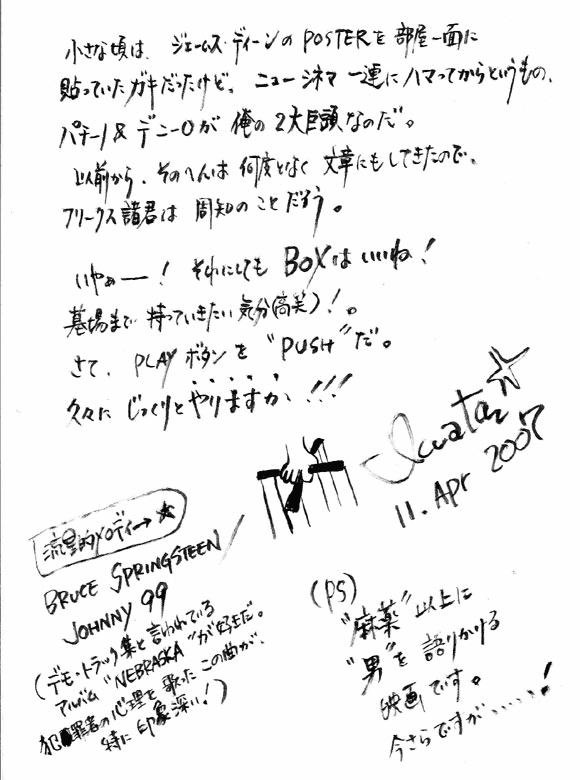 小さな頃は、ジェームス・ディーンのPOSTERを部屋一面に
貼っていたガキだったけど、ニューシネマ一連にハマってからというもの、
パチーノ&デニーロが俺の2大巨頭なのだ。
以前から、そのへんは何度となく文章にもしてきたので、
フリークス諸君は周知のことだろう。
いやぁー!それにしてもBOXはいいね!
墓場まで持っていきたい気分(高笑)!。
さて、PLAYボタンを"PUSH"だ。
久々にじっくりとやりますか、!!!
11. Apr 2007
流星的メロディー→★
BRUCE SPRINGSTEEN/
JOHNNY 99
(デモ・トラック集と言われている
アルバム"NEBRASKA"が好きだ。
犯罪者の心理を歌ったこの曲が、
特に印象深い!)
(PS)
"麻薬"以上に
"男"を語りかける
映画です。
今さらですが、、、、、!